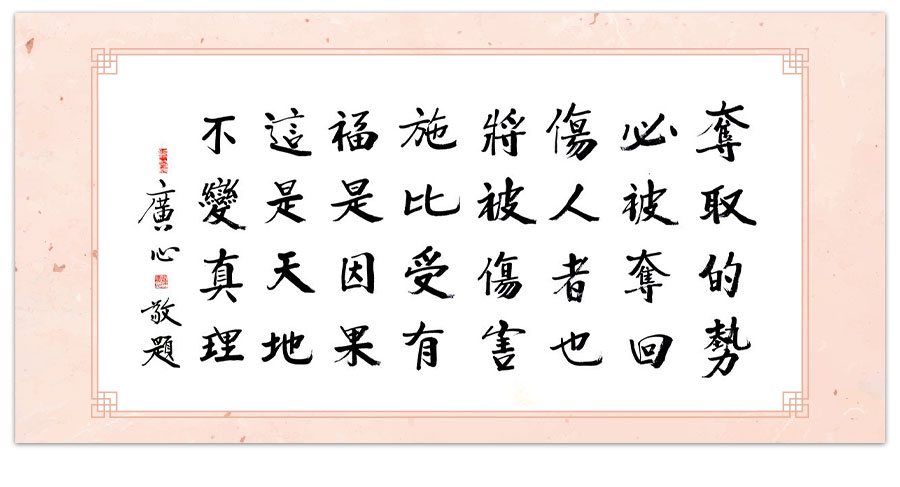 奪取的勢
必被奪回
傷人者也
將被傷害
施比受有
福是因果
這是天地
不變真理
廣心敬題